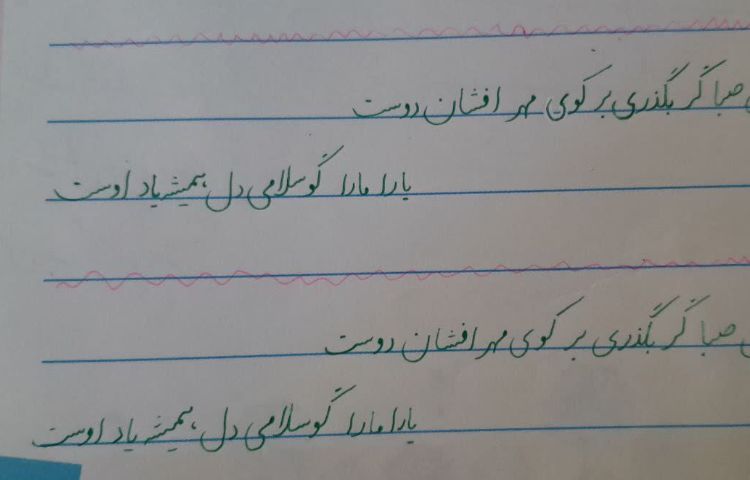 صبا گر بگذری بر کوی مهر افشان دوست
یارا مارا گو سلامی دل همیشه یاد اوست
صبا گر بگذری بر کوی مهر افشان دوست
یارا مارا گو سلامی دل همیشه یاد اوست